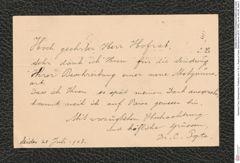 Hoch geehrter Herr Hofrat,
sehr dank ich Ihnen für die Sendung
Ihrer Beschreibung einer neue
art.
Das ich Ihnen so spät meinen Dank ausspreche
kommt weil ich auf Reise gewesen bin.
Mit vorzüglicher Hochachtung
und höflichen Grüssen
Leiden 28 Juli 1908.